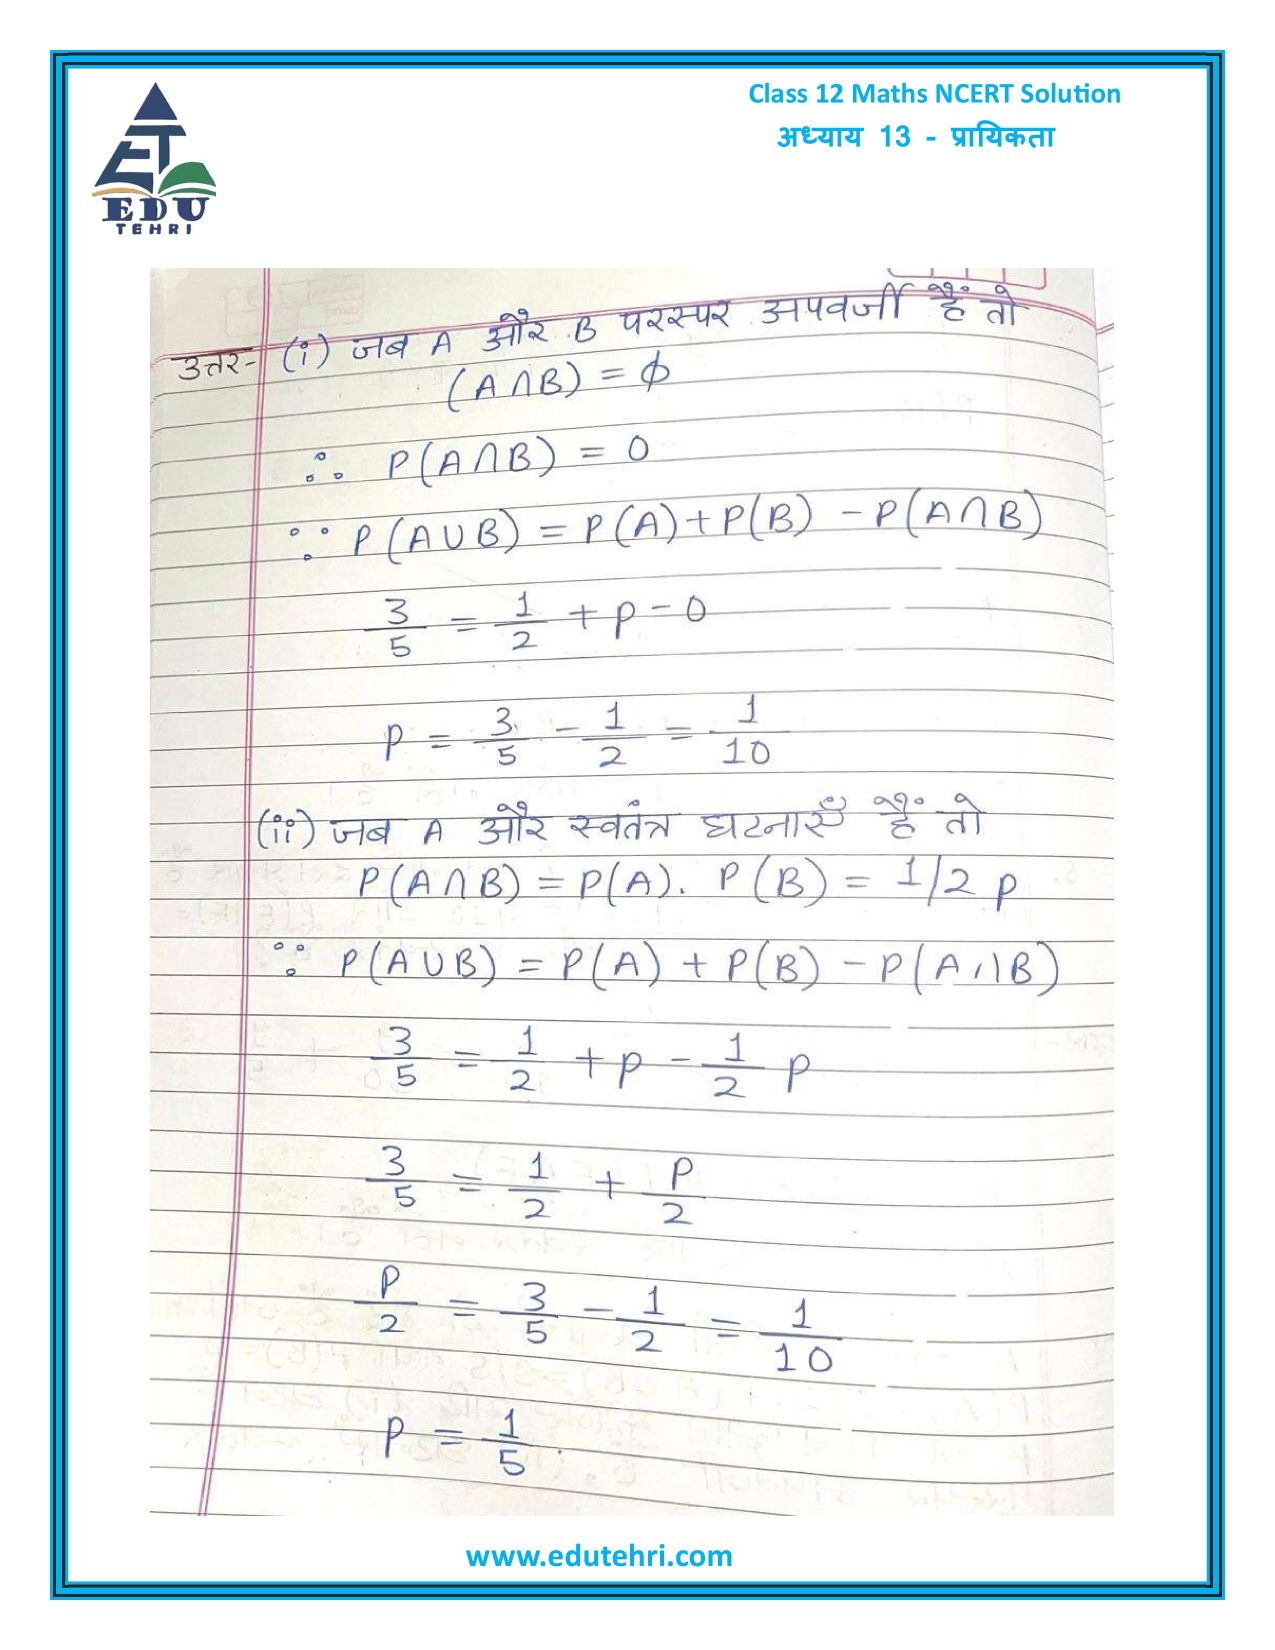 Class 12 Maths NCERT Solution
अध्याय 13 - प्रायिकता
EDU
TEHRI
उत्तर- (i) जब A और B परस्पर अपवर्जी हैं तो
(A∩B) = ϕ
∴ P(A∩B) = 0
∵ P(A∪B) = P(A)+P(B) - P(A∩B)
3/5 = 1/2 + p - 0
p = 3/5 - 1/2 = 1/10
(ii) जब A और स्वतंत्र घटनाएँ हैं तो
P(A∩B) = P(A). P(B) = 1/2 p
∵ P(A∪B) = P(A) + P(B) - P(A∩B)
3/5 = 1/2 + p - 1/2 p
3/5 = 1/2 + p/2
p/2 = 3/5 - 1/2 = 1/10
p = 1/5
www.edutehri.com